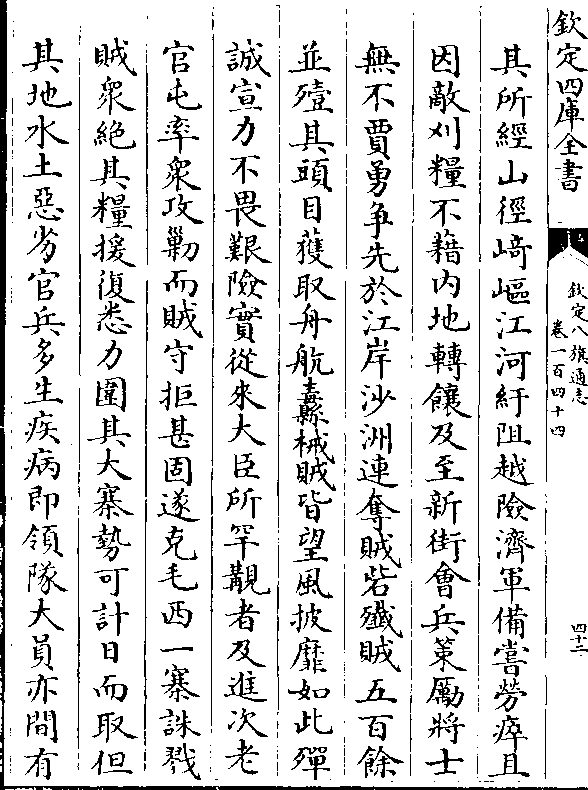 欽定四庫全書
欽定八旗通志
卷一百四十四
四十二
其所經山徑﨑嶇江河紆阻越險濟軍備嘗勞瘁且
因敵刈糧不藉内地轉饟及至新街會兵策勵將士
無不賈勇爭先於江岸沙洲連奪賊砦殱賊五百餘
並殪其頭目獲取舟航纛械賊皆望風披靡如此殫
誠宣力不畏艱險實從來大臣所罕覯者及進次老
官屯率衆攻勦而賊守拒甚固遂克毛西一寨誅戮
賊衆絶其糧援復悉力圍其大寨勢可計日而取但
其地水土惡劣官兵多生疾病即領隊大員亦間有